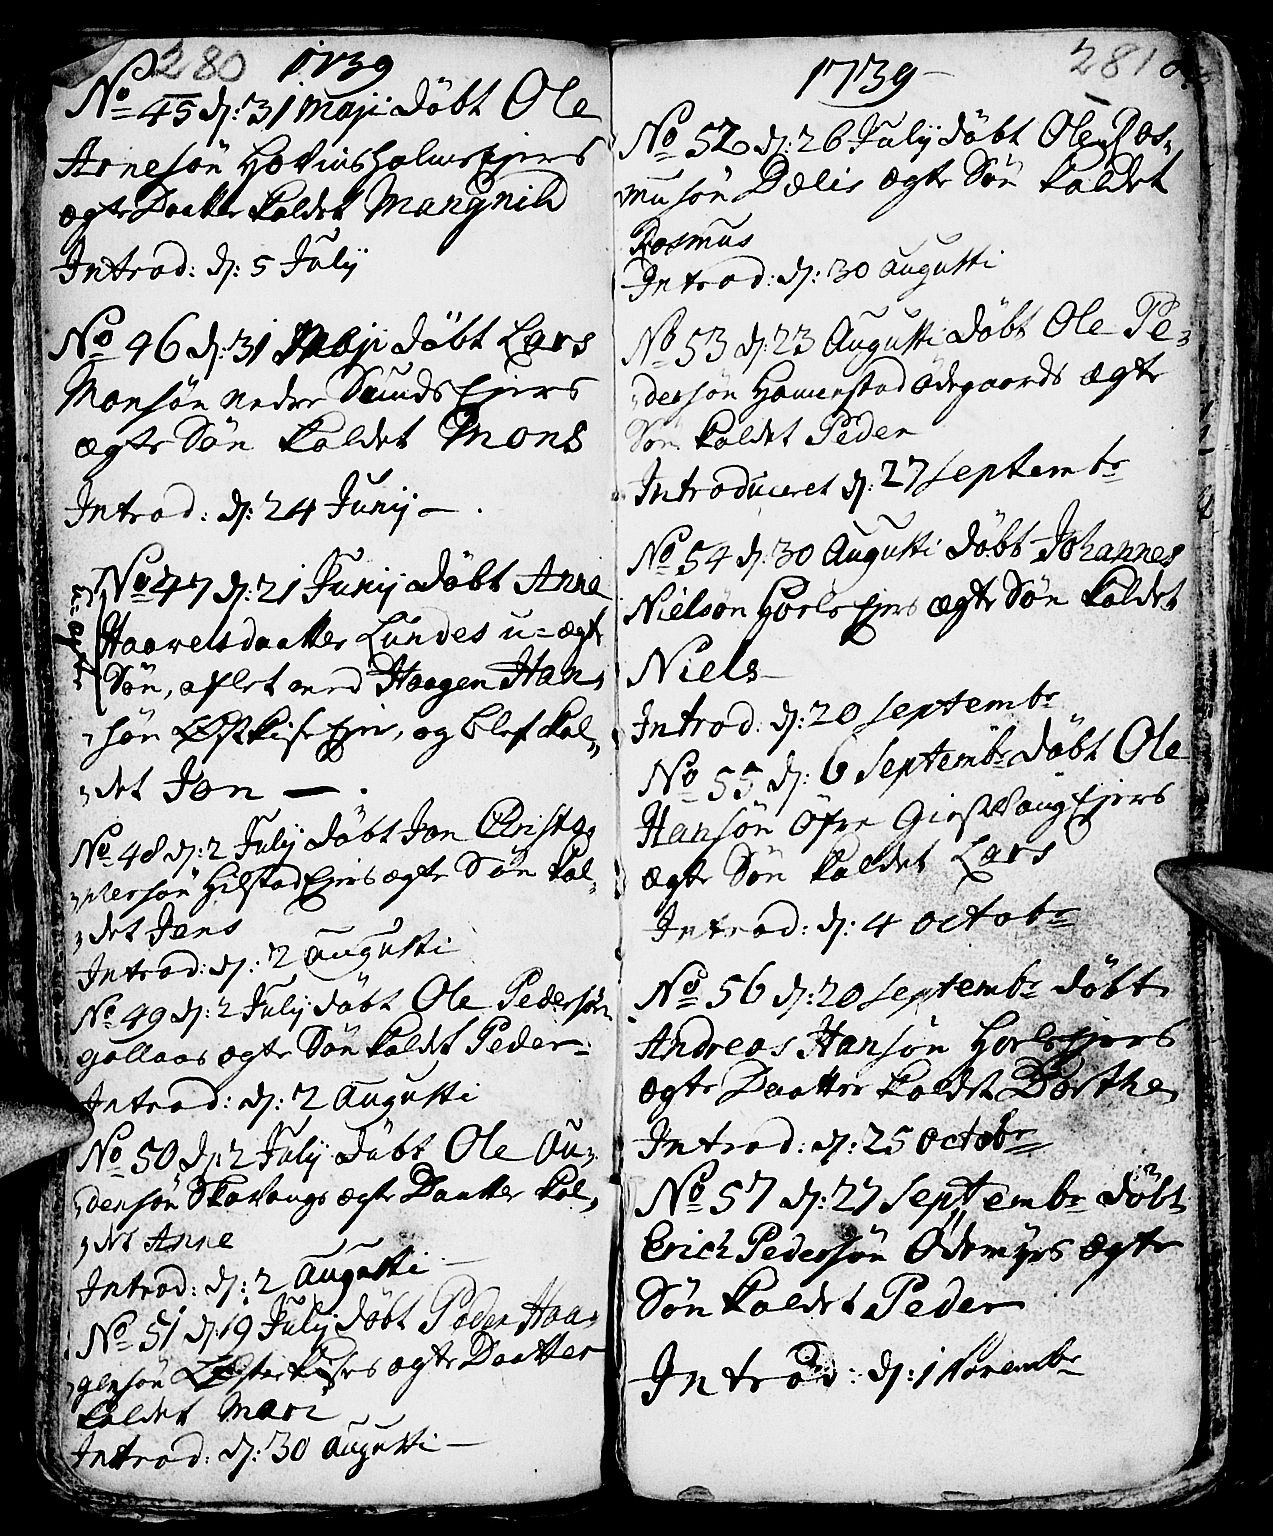 280 1739
No 45 d: 31 Maji döbt Ole
Arnesön Hovinsholms Ejers
ægte Daatter kaldet Mangnild
Introd: d: 5 Julij
No 46 d: 31 Maji döbt Lars
Monsön nedre Sunds Ejers
ægte Sön kaldet Mons
Introd: d: 24 Junij
u-ægte
No 47 d: 21 Junij döbt Anne
Haavelsdaatter Lundes u-ægte
Sön, aflet med Haagen Han-
sön Ejer, og blef kal-
det Jon
No 48 d: 2 Julij döbt Jon Christo-
phersön Hilstad Ejers ægte Sön kal-
det Jens
Introd: d: 2 Augusti
No 49 d: 2 Julij döbt Ole Pedersön
gollaas ægte Sön kaldet Peder
Introd: d: 2 Augusti
No 50 d: 2 Julij döbt Ole Au-
densön Skavangs ægte Daatter kal-
det Anne
Introd: d: 2 Augusti
No 51 d: 19 Julij döbt Peder Haa-
gensön ægte Daatter
kaldet Mari
Introd: d: 30 Augusti
281
1739
No 52 d: 26 Julij döbt Ole Ras-
musön Dælis ægte Sön kaldet
Rasmus
Introd: d: 30 Augusti
No 53 d: 23 Augusti döbt Ole Pe-
dersön Hamerstad ødegaards ægte
Sön kaldet Peder
Introduceret d: 27 Septembr
No 54 d: 30 Augusti döbt Johannes
Nielsön Horls Ejers ægte Sön kaldet
Niels
Introd: d: 20 Septembr
No 55 d: 6 Septembr döbt Ole
Hansön Öfre Giestvang Ejers
ægte Sön kaldet Lars
Introd: d: 4 Octobr
No 56 d: 20 Septembr döbt
Andreas Hansön Horls Ejers
ægte Daatter kaldet Dorthe
Introd: d: 25 Octobr
No 57 d: 27 Septembr döbt
Erich Pedersön Ödemyrs ægte
Sön kaldet Peder
Introd: d: 1 Novembr